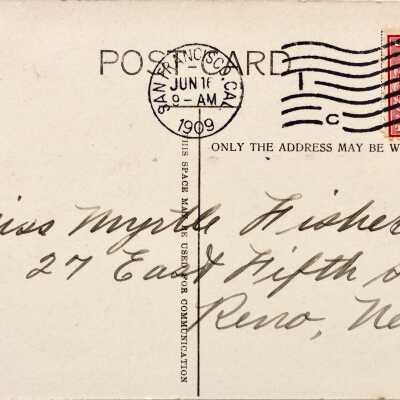 POST CARD
SAN FRANCISCO, CAL.
JUN 16
9-AM
1909
1
C
ONLY THE ADDRESS MAY BE W
THIS SPACE MAY BE USED FOR COMMUNICATION
iss Myrtle Fisher
27 East Fifth S
Reno, Ne